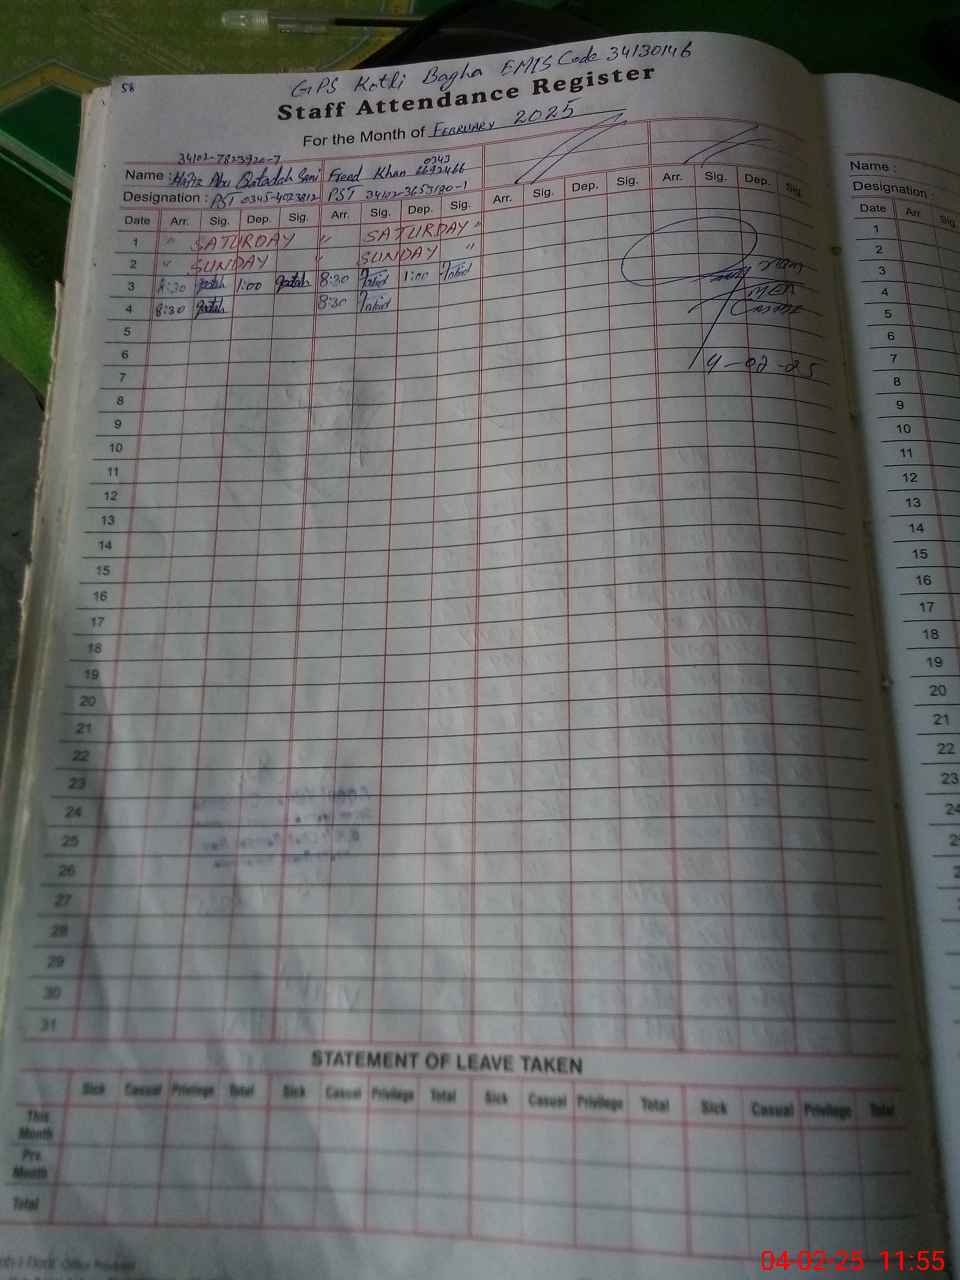 58
GPS Kotli Bagha EMIS Code 34130146
Staff Attendance Register
For the Month of FEBRUARY 2025
34102-7823920-7 0343
Name : Hafiz Abu Qatadah Sani Freed Khan 6692466
Designation : PST 0345-4023812 PST 34102-3653190-1
Date Arr. Sig. Dep. Sig. Arr. Sig. Dep. Sig. Arr. Sig. Dep. Sig. Arr. Sig. Dep. Sig.
1 " SATURDAY " SATURDAY "
2 " SUNDAY " SUNDAY "
3 8:30 1:00 8:30 1:00
4 8:30 8:30
5
6
7
4-02-25
8
9
10
11
12
13
14
15
16
17
18
19
20
21
22
23
24
25
26
27
28
29
30
31
STATEMENT OF LEAVE TAKEN
Sick Casual Privilege Total Sick Casual Privilege Total Sick Casual Privilege Total Sick Casual Privilege Total
This Month
Pre. Month
Total
Name :
Designation :
Date Arr. Sig
1
2
3
4
5
6
7
8
9
10
11
12
13
14
15
16
17
18
19
20
21
22
23
24
04-02-25 11:55